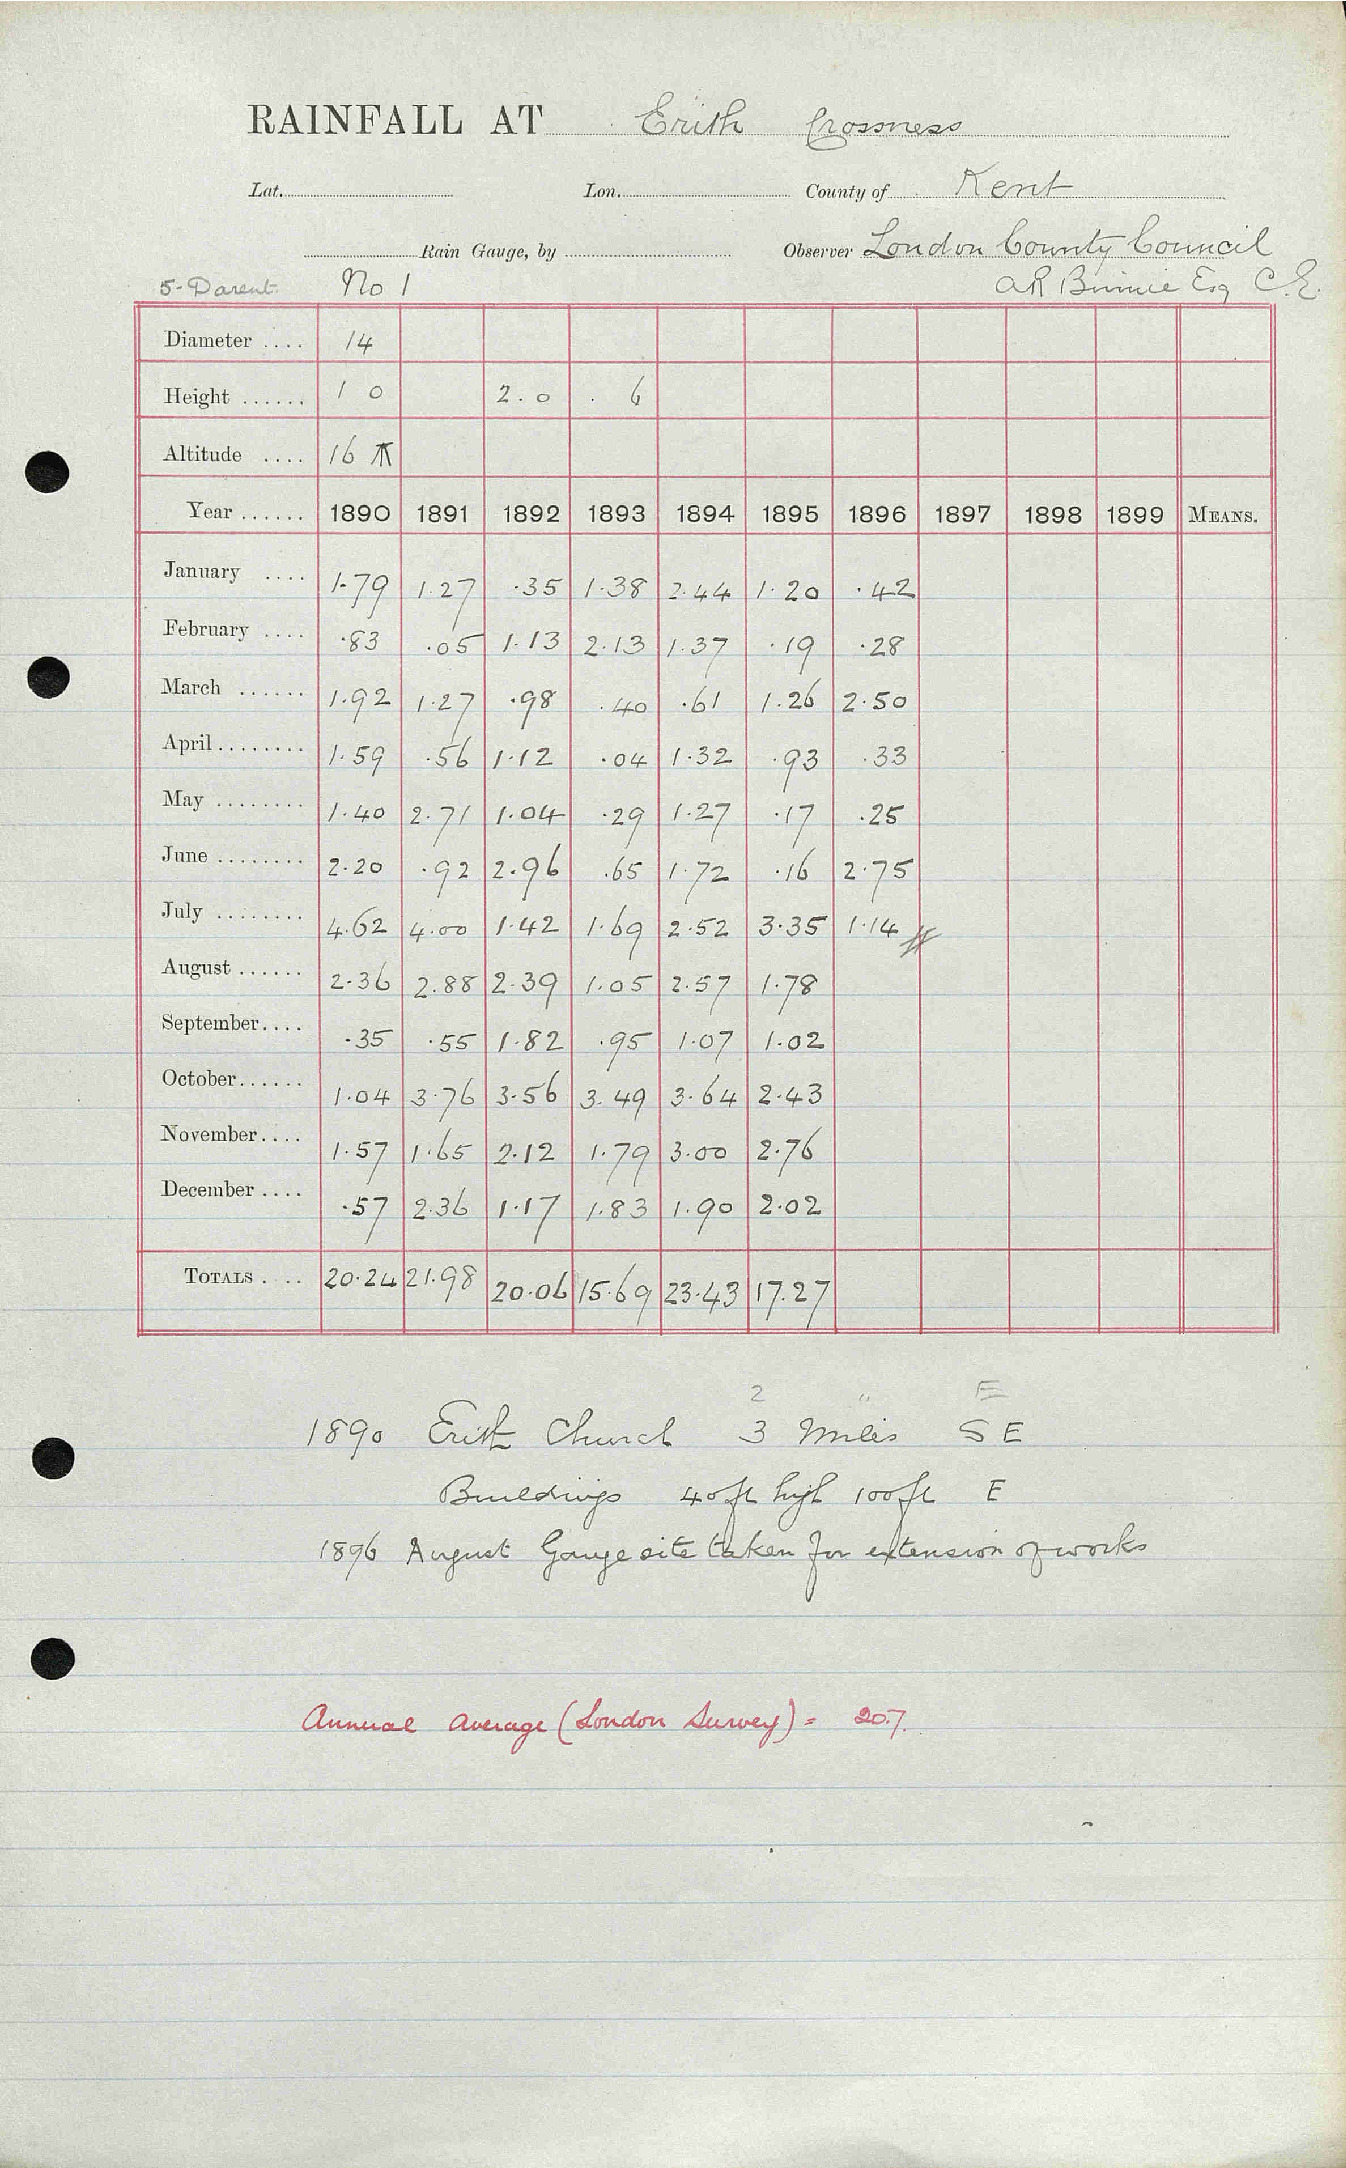 RAINFALL AT Erith Crossness
Lat. Lon. County of Kent
Rain Gauge, by Observer London County Council
5-Darent No 1 AR Binnie Esq C.E.
Diameter .... 14
Height ...... 1 0 2.0 . 6
Altitude .... 16
Year ...... 1890 1891 1892 1893 1894 1895 1896 1897 1898 1899 MEANS.
January .... 1.79 1.27 .35 1.38 2.44 1.20 .42
February .... .83 .05 1.13 2.13 1.37 .19 .28
March ...... 1.92 1.27 .98 .40 .61 1.26 2.50
April ........ 1.59 .56 1.12 .04 1.32 .93 .33
May ........ 1.40 2.71 1.04 .29 1.27 .17 .25
June ........ 2.20 .92 2.96 .65 1.72 .16 2.75
July ........ 4.62 4.00 1.42 1.69 2.52 3.35 1.14
August ...... 2.36 2.88 2.39 1.05 2.57 1.78
September.... .35 .55 1.82 .95 1.07 1.02
October...... 1.04 3.76 3.56 3.49 3.64 2.43
November.... 1.57 1.65 2.12 1.79 3.00 2.76
December .... .57 2.36 1.17 1.83 1.90 2.02
TOTALS .... 20.24 21.98 20.06 15.69 23.43 17.27
2 " E
1890 Erith Church 3 Miles S E
Buildings 40ft high 100ft E
1896 August Gauge site taken for extension of works
Annual average (London Survey) = 20.7.